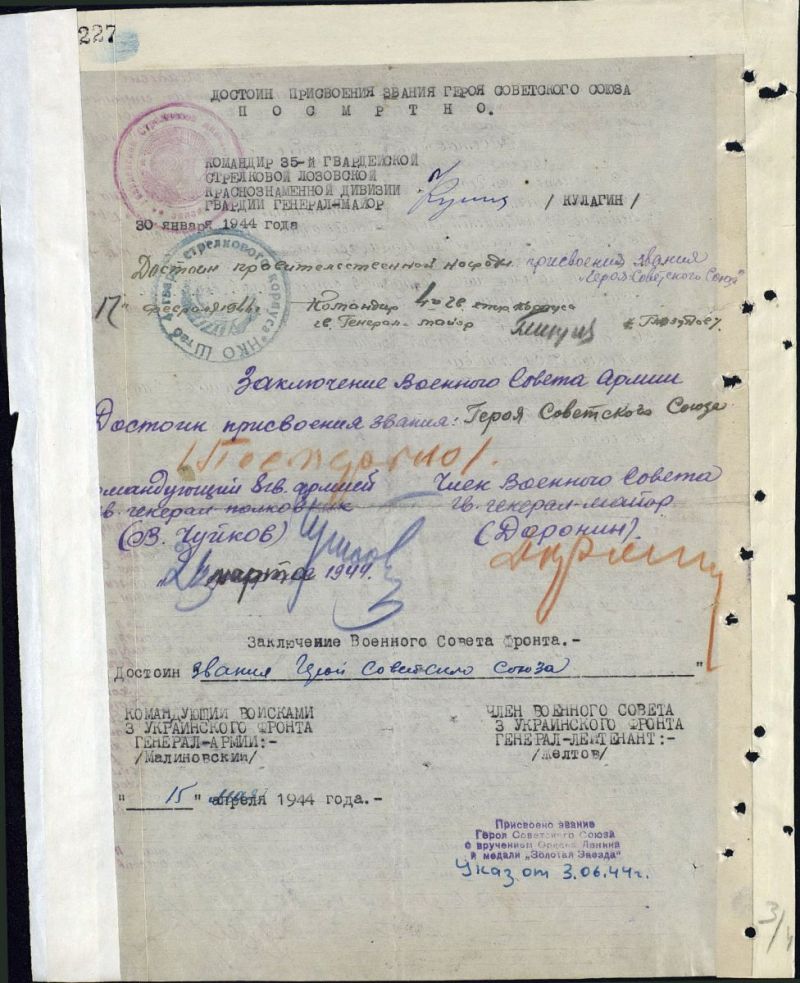 227
ДОСТОИН ПРИСВОЕНИЯ ЗВАНИЯ ГЕРОЯ СОВЕТСКОГО СОЮЗА
П О С М Р Т Н О.
КОМАНДИР 35-Й ГВАРДЕЙСКОЙ
СТРЕЛКОВОЙ ЛОЗОВСКОЙ
КРАСНОЗНАМЕННОЙ ДИВИЗИИ
ГВАРДИИ ГЕНЕРАЛ-МАЙОР / КУЛАГИН /
30 ЯНВАРЯ 1944 ГОДА
Достоин правительственной награды присвоения звания
"Героя Советского Союза"
17" февраля 1944г. Командир 4-го гв. стр. корпуса
гв. Генерал-майор
Штаб 4 гвард. стрелкового корпуса НКО
Заключение Военного Совета Армии
Достоин присвоения звания: Героя Советского Союза
/Посмертно/.
омандующий 8 гв. армией Член Военного Совета
гв. генерал-полковник гв. генерал-майор
(В. Чуйков) (Доронин).
марта 1944.
Заключение Военного Совета Фронта.-
Достоин звания Герой Советского Союза "
КОМАНДУЮЩИЙ ВОЙСКАМИ ЧЛЕН ВОЕННОГО СОВЕТА
3 УКРАИНСКОГО ФРОНТА 3 УКРАИНСКОГО ФРОНТА
ГЕНЕРАЛ-АРМИИ:- ГЕНЕРАЛ-ЛЕЙТЕНАНТ:-
/Малиновский/ /Желтов/
" 15 " апреля мая 1944 года.-
Присвоено звание
Героя Советского Союза
с вручением Ордена Ленина
и медали „Золотая Звезда"
Указ от 3.06.44г.
3/4